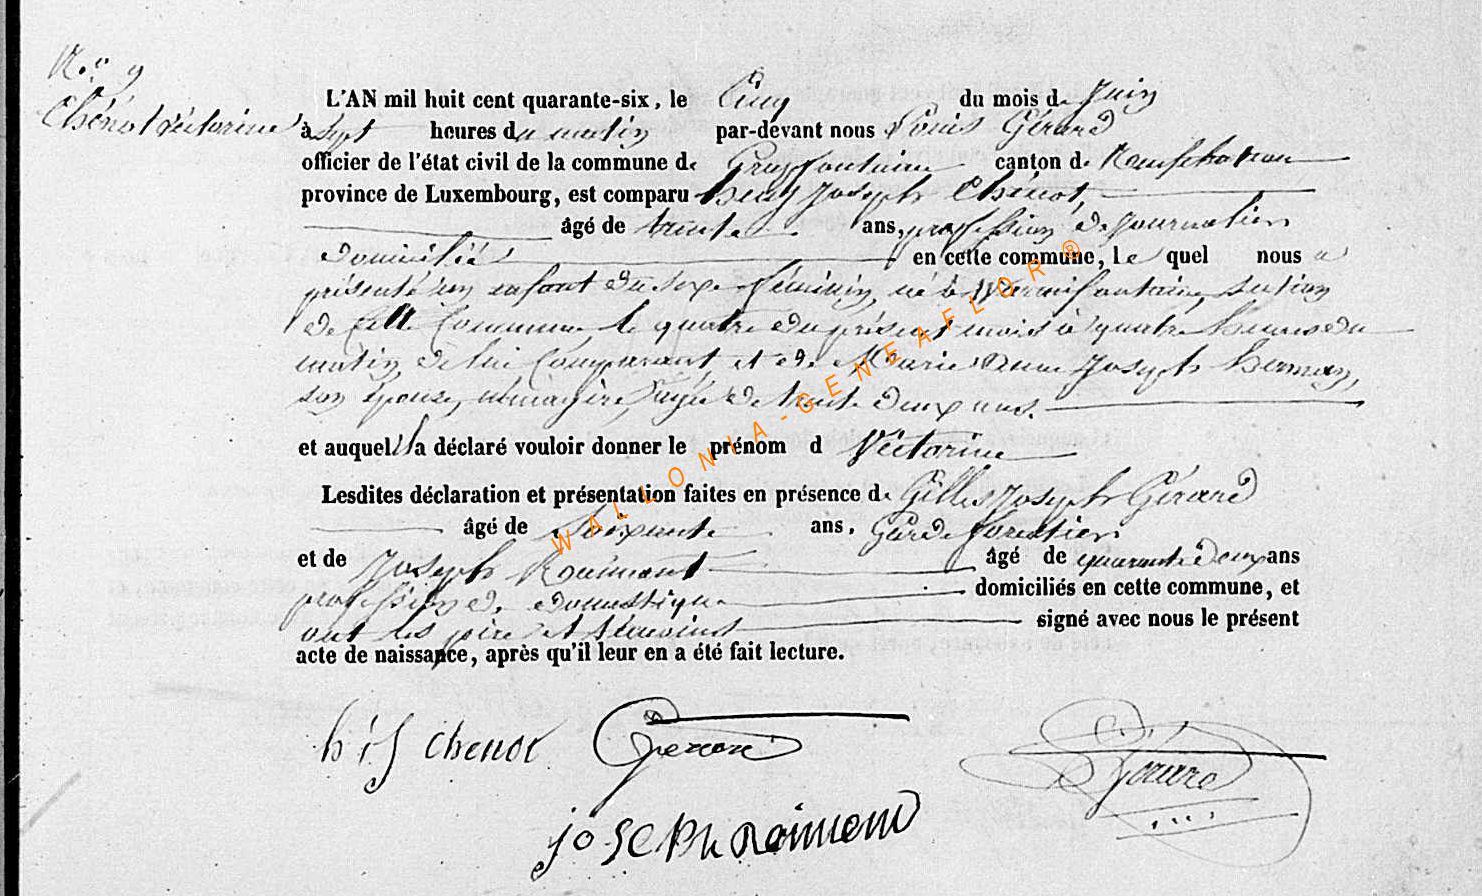 N.o 9
Chénot Victorine
L'AN mil huit cent quarante-six, le Cinq du mois de Juin
à sept heures du matin par-devant nous Louis Gérard
officier de l'état civil de la commune de Grapfontaine canton de Neufchateau
province de Luxembourg, est comparu Henry Joseph Chénot,
âgé de trente ans, profession de journalier
domicilié en cette commune, le quel nous a
présenté un enfant du sexe féminin, né à Warmifontaine, section
de cette Commune le quatre du présent mois à quatre heures du
matin de lui Comparant, et de Marie Anne Joseph Herman,
son épouse, ménagère, âgée de trente deux ans.
et auquel il a déclaré vouloir donner le prénom d Victorine
Lesdites déclaration et présentation faites en présence de Gilles Joseph Gérard
âgé de soixante ans, Garde forestier
et de Joseph Roiseux âgé de quarante deux ans
profession de domestique domiciliés en cette commune, et
ont les père et témoins signé avec nous le présent
acte de naissance, après qu'il leur en a été fait lecture.
h j Chenot Gerard Gérard
JOSEPh
WALLONIA-GENEAFLOR ®